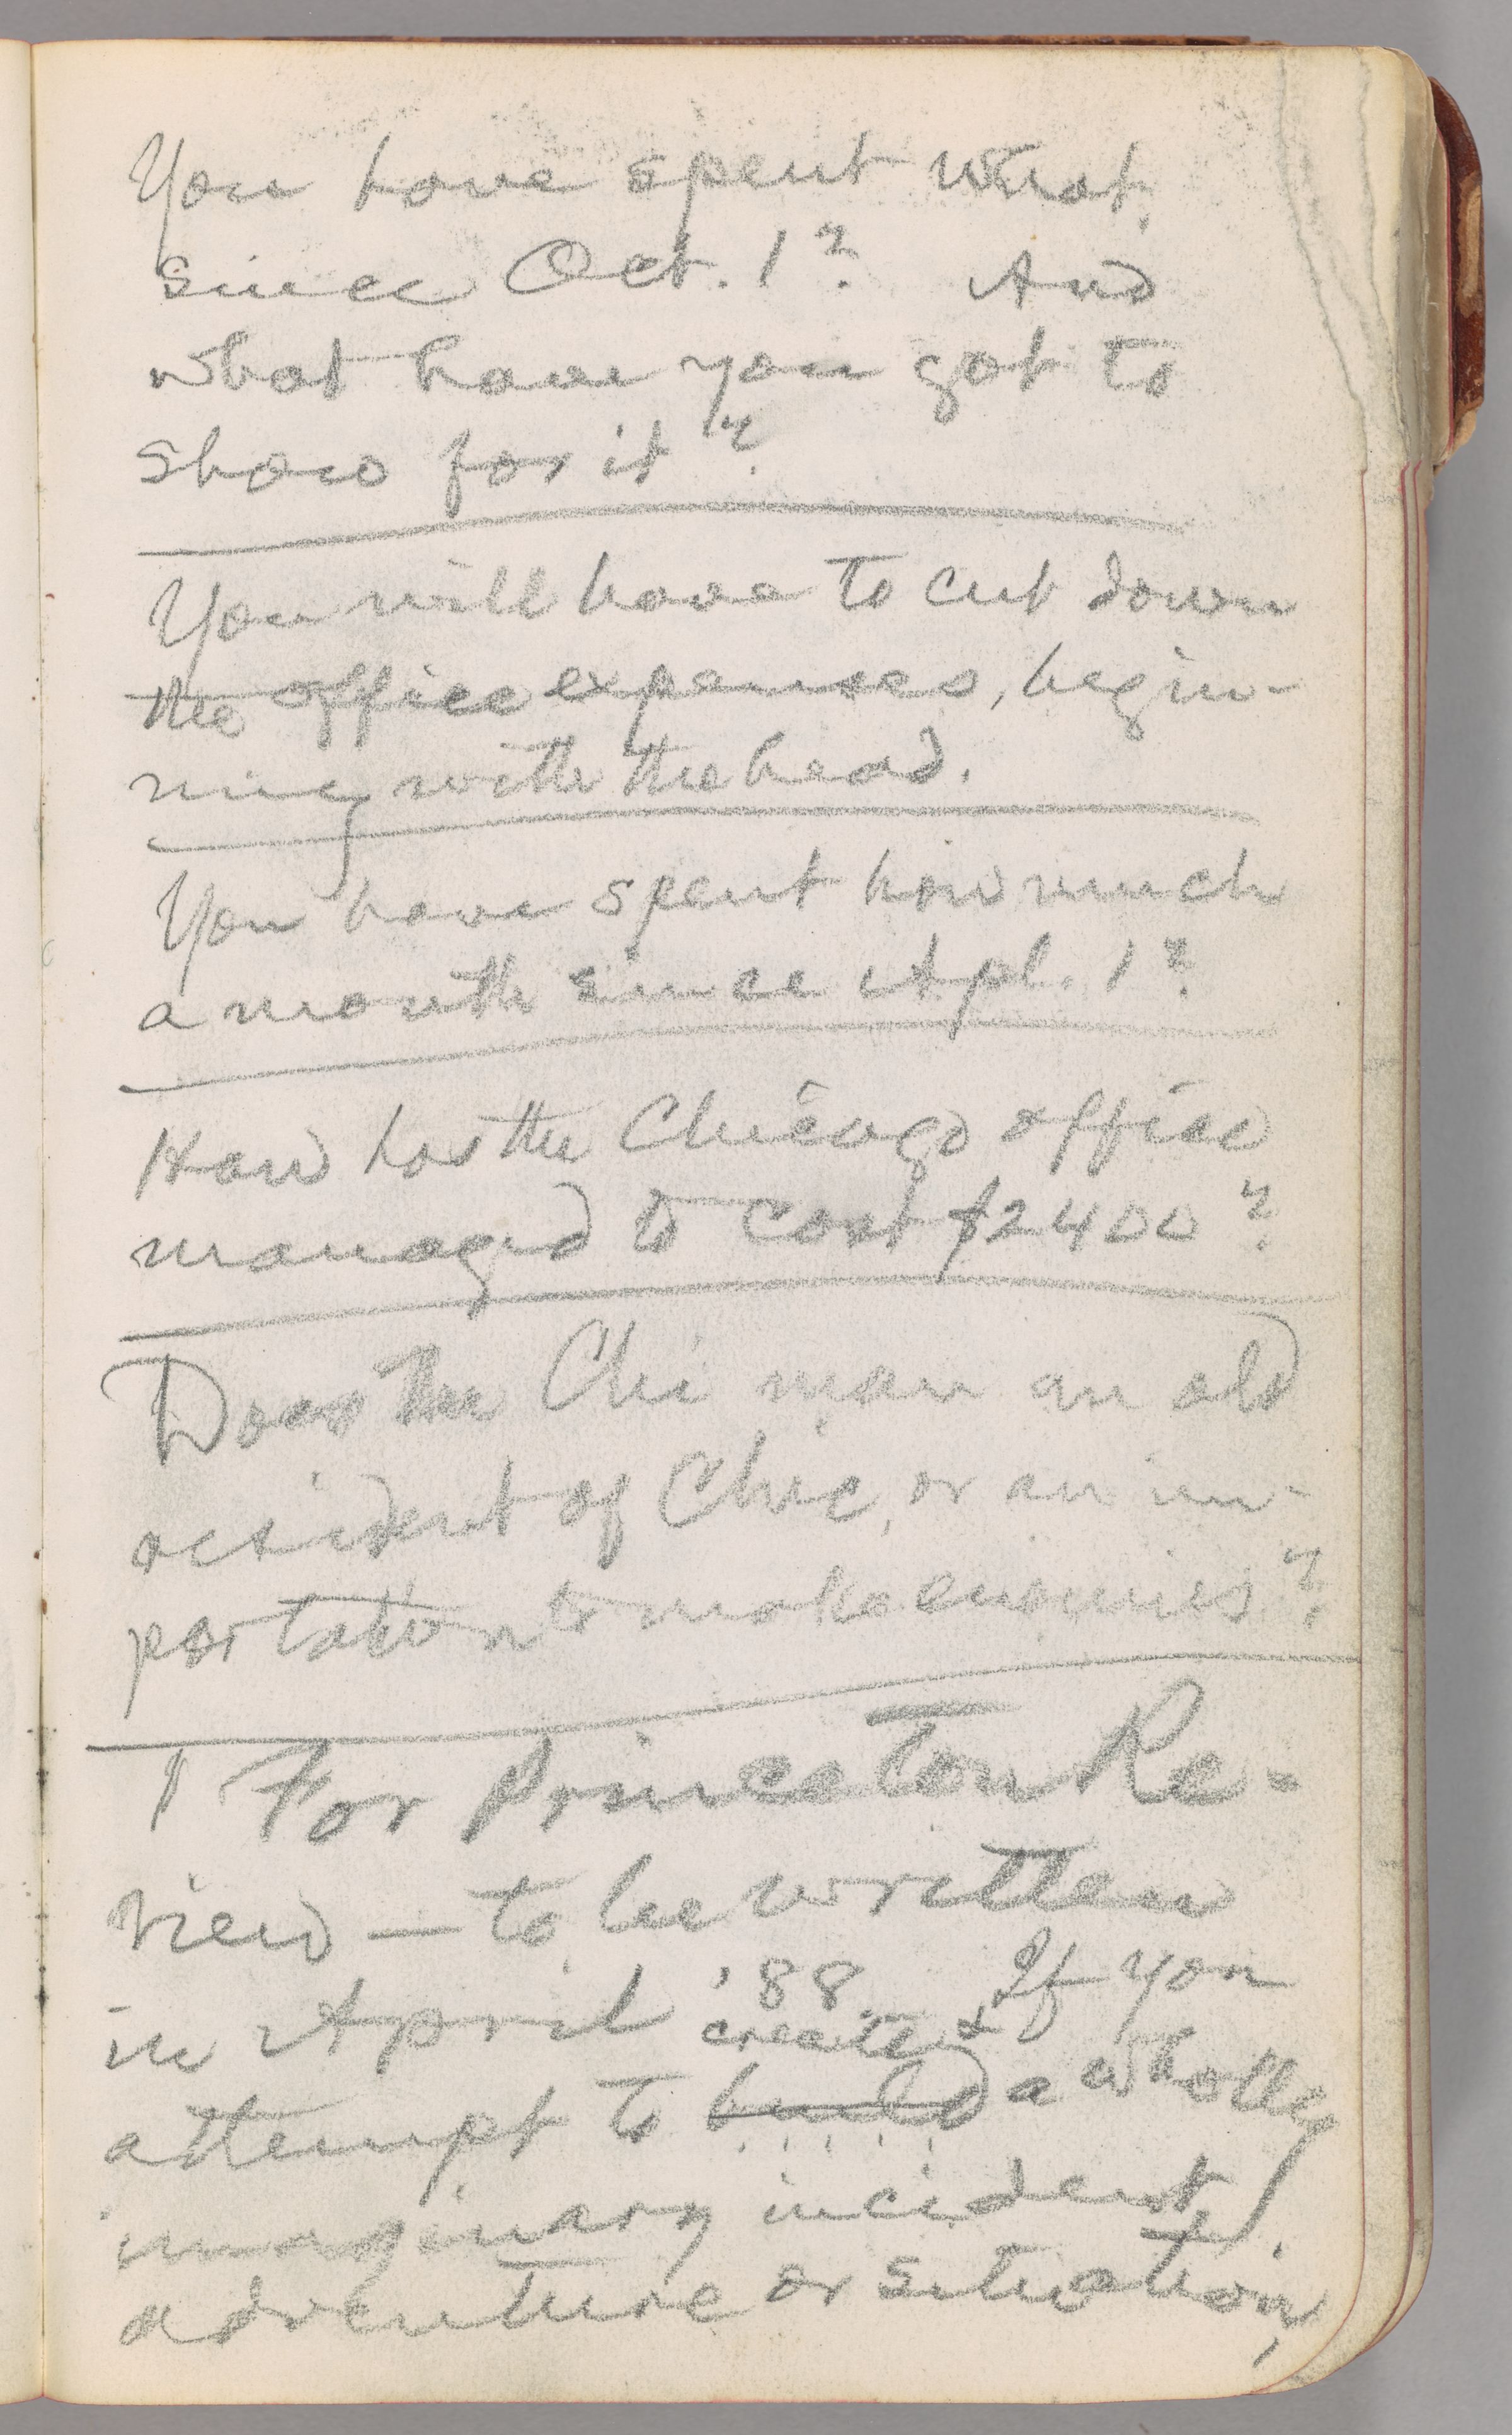 You have spent what,
since Oct. 1? And
what have you got to
show for it?
You will have to cut down
the office expenses, begin-
ning with the head.
You have spent how much
a month since Apl. 1?
How has the Chicago office
managed to cost $2400?
Does the Chi man an old
resident of Chic, or an im-
portation to make enemies?
For Princeton Re-
view — to be written
in April '88. If you
create &
attempt to build a wholly
imaginary incident,
adventure or situation,